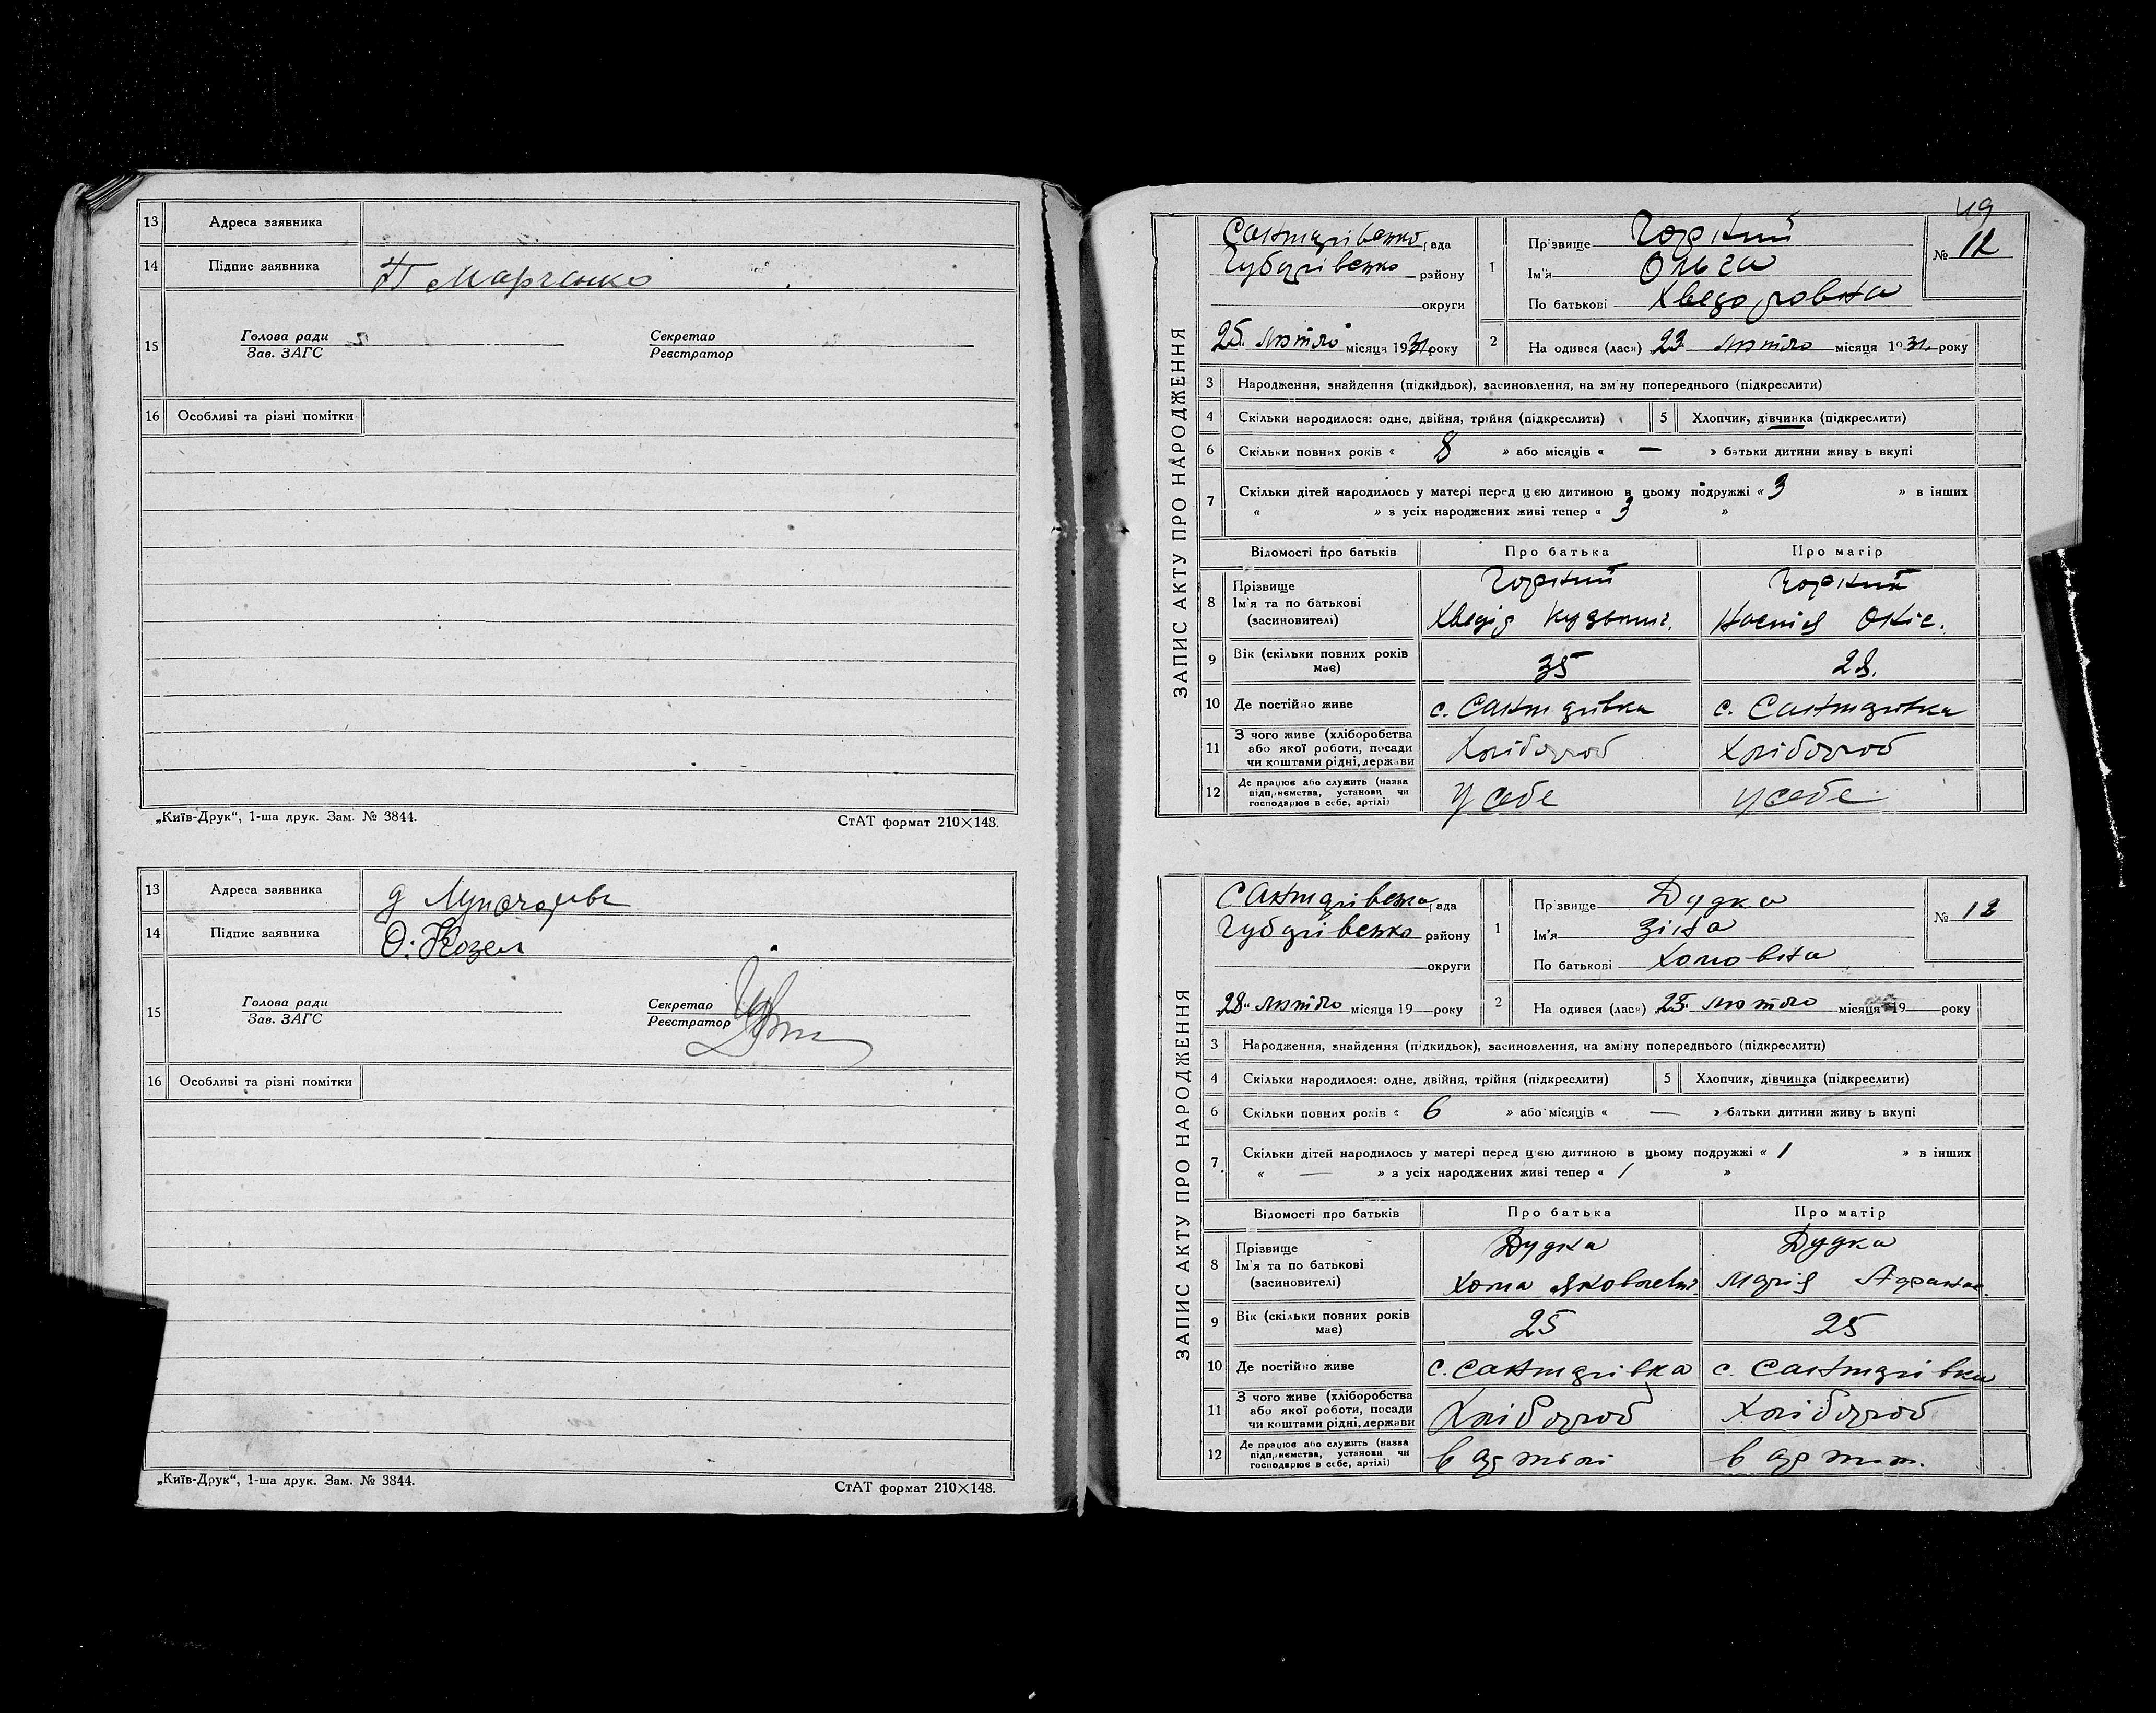 13 Адреса заявника
14 Підпис заявника П Марченко
15 Голова ради Секретар
Зав. ЗАГС Реєстратор
16 Особливі та різні помітки
„Київ-Друк“, 1-ша друк. Зам. № 3844. СтАТ формат 210×148.
13 Адреса заявника
14 Підпис заявника О. Козел
15 Голова ради Секретар
Зав. ЗАГС Реєстратор
16 Особливі та різні помітки
„Київ-Друк“, 1-ша друк. Зам. № 3844. СтАТ формат 210×148.
49
ЗАПИС АКТУ ПРО НАРОДЖЕННЯ
рада
району
округи
25 Лютого місяця 1931 року
№ 12
1 Прізвище
Ім'я Ольга
По батькові Хведоровна
2 На одився (лася) 23 лютого місяця 1931 року
3 Народження, знайдення (підкидьок), засиновлення, на зміну попереднього (підкреслити)
4 Скільки народилося: одне, двійня, трійня (підкреслити) 5 Хлопчик, дівчинка (підкреслити)
6 Скільки повних років « 8 » або місяців « — » батьки дитини живу ь вкупі
7 Скільки дітей народилось у матері перед цією дитиною в цьому подружжі « 3 » в інших
« » з усіх народжених живі тепер « 3 »
Відомості про батьків Про батька Про матір
8 Прізвище
Ім'я та по батькові
(засиновителі)
9 Вік (скільки повних років має) 35 28.
10 Де постійно живе
11 З чого живе (хліборобства або якої роботи, посади чи коштами рідні, держави Хлібороб Хлібороб
12 Де працює або служить (назва підприємства, установи чи господарює в себе, артілі) у себе у себе
ЗАПИС АКТУ ПРО НАРОДЖЕННЯ
рада
району
округи
28 лютого місяця 19 року
№ 13
1 Прізвище Дудка
Ім'я Зіна
По батькові Хомовна
2 На одився (лася) 25 лютого місяця 19 року
3 Народження, знайдення (підкидьок), засиновлення, на зміну попереднього (підкреслити)
4 Скільки народилося: одне, двійня, трійня (підкреслити) 5 Хлопчик, дівчинка (підкреслити)
6 Скільки повних років « 6 » або місяців « — » батьки дитини живу ь вкупі
7 Скільки дітей народилось у матері перед цією дитиною в цьому подружжі « 1 » в інших
« — » з усіх народжених живі тепер « 1 »
Відомості про батьків Про батька Про матір
8 Прізвище Дудка Дудка
Ім'я та по батькові
(засиновителі) Хома Яковлевич Марія
9 Вік (скільки повних років має) 25 25
10 Де постійно живе
11 З чого живе (хліборобства або якої роботи, посади чи коштами рідні, держави Хлібороб Хлібороб
12 Де працює або служить (назва підприємства, установи чи господарює в себе, артілі) в артілі в артіл.